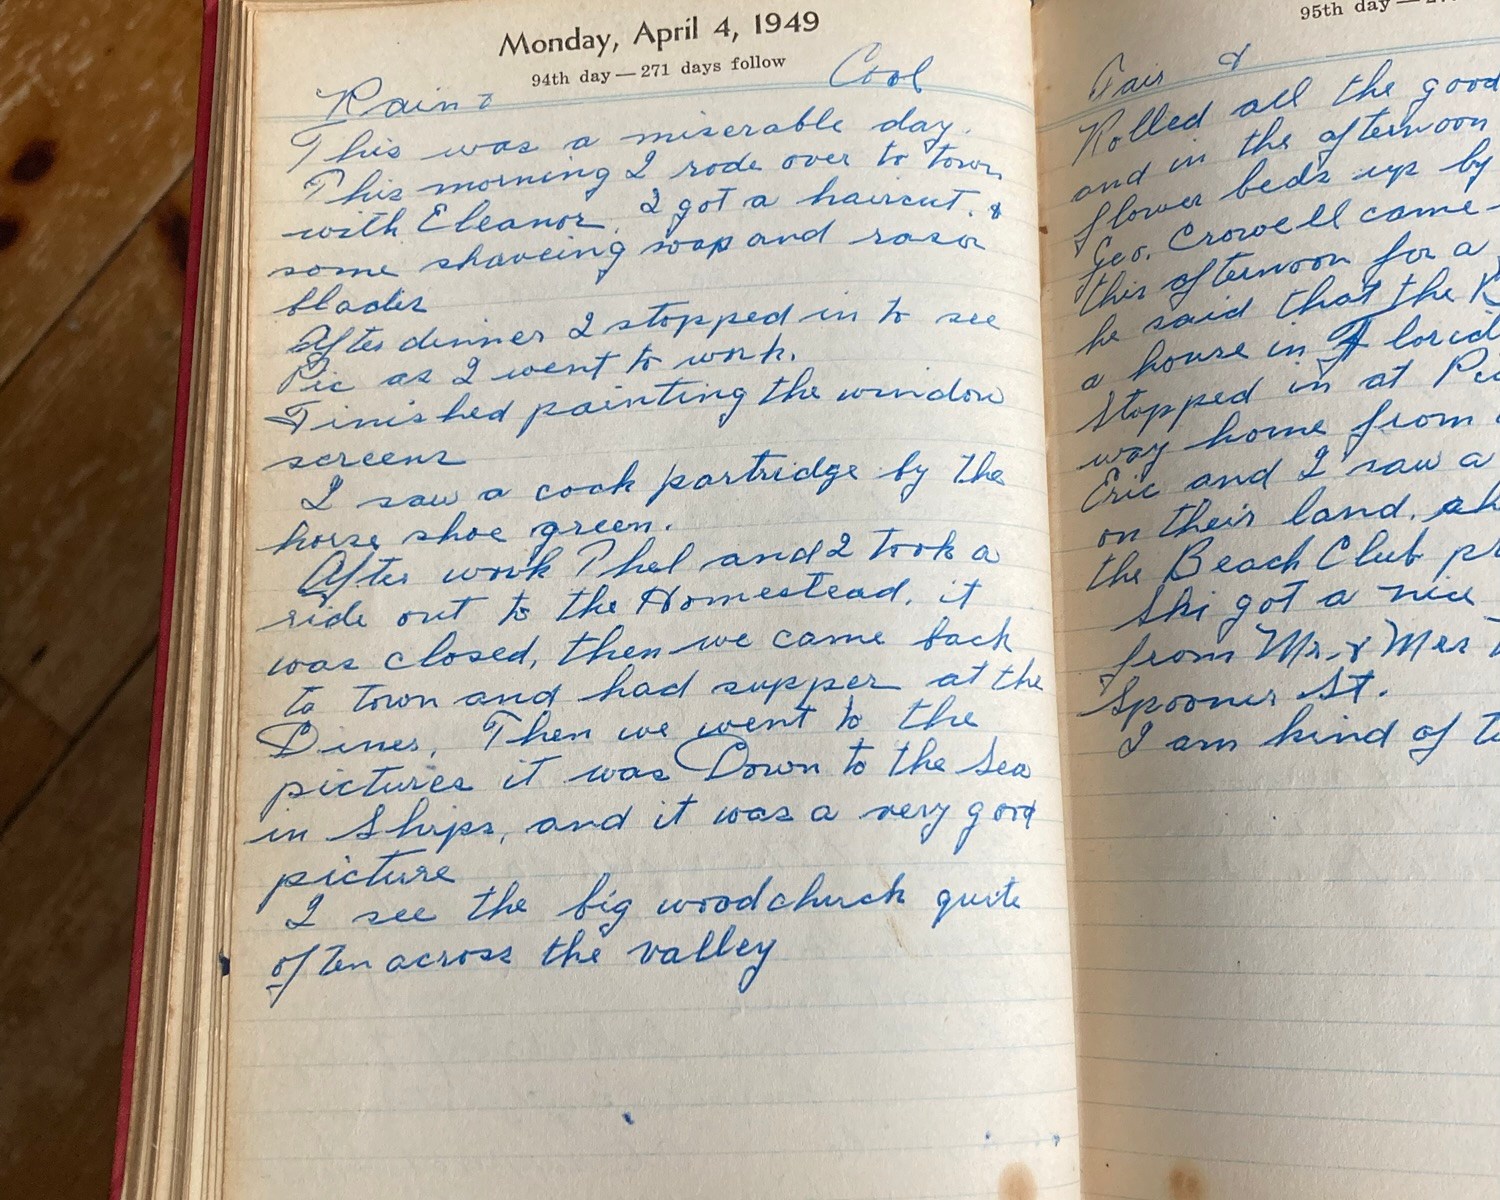 Monday, April 4, 1949
94th day — 271 days follow
Rain & Cool
This was a miserable day.
This morning I rode over to town
with Eleanor. I got a haircut. &
some shaveing soap and rasor
blades
After dinner I stopped in to see
Pic as I went to work.
Finished painting the window
screens
I saw a cock partridge by the
horse shoe green.
After work Phel and I took a
ride out to the Homestead, it
was closed, then we came back
to town and had supper at the
Diner. Then we went to the
pictures it was Down to the Sea
in Ships, and it was a very good
picture
I see the big woodchuck quite
often across the valley
95th day —
Fair &
Rolled all the good
and in the afternoon
flower beds up by
Geo. Crowell came
this afternoon for a
he said that the
a house in
Stopped in at
way home from
Eric and I saw a
on their land,
the Beach Club
Ski got a nice
from Mr. & Mrs
Spooner St.
I am kind of